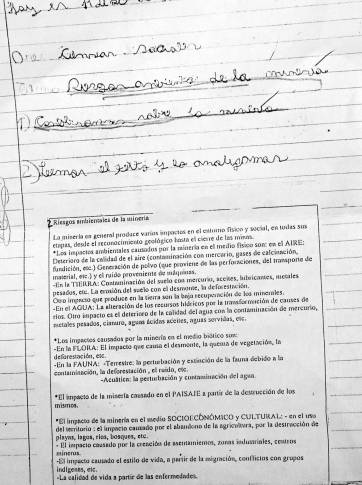 Hoy es
Ciencias Sociales
Riesgos ambientales de la minería
1) Conversamos sobre la minería
2) Leemos el texto y lo analizamos
2 Riesgos ambientales de la minería
La minería en general produce varios impactos en el entorno físico y social, en todas sus
etapas, desde el reconocimiento geológico hasta el cierre de las minas.
*Los impactos ambientales causados por la minería en el medio físico son: en el AIRE:
Deterioro de la calidad de el aire (contaminación con mercurio, gases de calcinación,
fundición, etc.) Generación de polvo (que proviene de las perforaciones, del transporte de
material, etc.) y el ruido proveniente de máquinas.
-En la TIERRA: Contaminación del suelo con mercurio, aceites, lubricantes, metales
pesados, etc. La erosión del suelo con el desmonte, la deforestación.
Otro impacto que produce en la tierra son la baja recuperación de los minerales.
-En el AGUA: La alteración de los recursos hídricos por la transformación de causes de
ríos. Otro impacto es el deterioro de la calidad del agua con la contaminación de mercurio,
metales pesados, cianuro, aguas ácidas aceites, aguas servidas, etc.
*Los impactos causados por la minería en el medio biótico son:
-En la FLORA: El impacto que causa el desmonte, la quema de vegetación, la
deforestación, etc.
-En la FAUNA: -Terrestre: la perturbación y extinción de la fauna debido a la
contaminación, la deforestación , el ruido, etc.
-Acuática: la perturbación y contaminación del agua.
*El impacto de la minería causado en el PAISAJE a partir de la destrucción de los
mismos.
*El impacto de la minería en el medio SOCIOECÓNÓMICO y CULTURAL: - en el uso
del territorio : el impacto causado por el abandono de la agricultura, por la destrucción de
playas, lagos, ríos, bosques, etc.
- El impacto causado por la creación de asentamientos, zonas industriales, centros
mineros.
-El impacto causado el estilo de vida, a partir de la migración, conflictos con grupos
indígenas, etc.
-La calidad de vida a partir de las enfermedades.